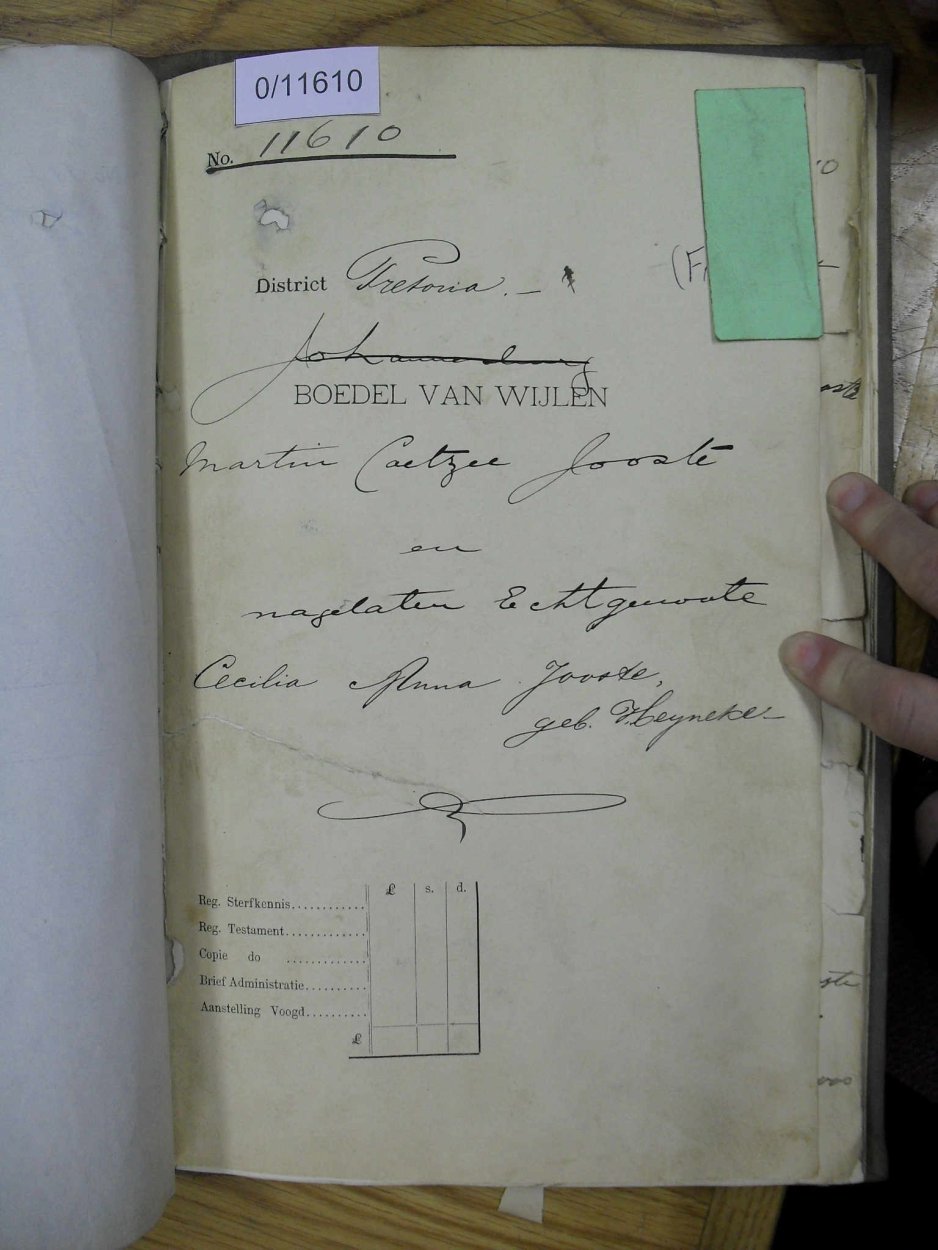 0/11610
No. 11610
District Pretoria. —
Johannesburg
BOEDEL VAN WIJLEN
Martin Coetzee Jooste
en
nagelaten Echtgenoote
Cecilia Anna Jooste,
geb. Heyneke
£ s. d.
Reg. Sterfkennis............
Reg. Testament.............
Copie do .............
Brief Administratie..........
Aanstelling Voogd..........
£